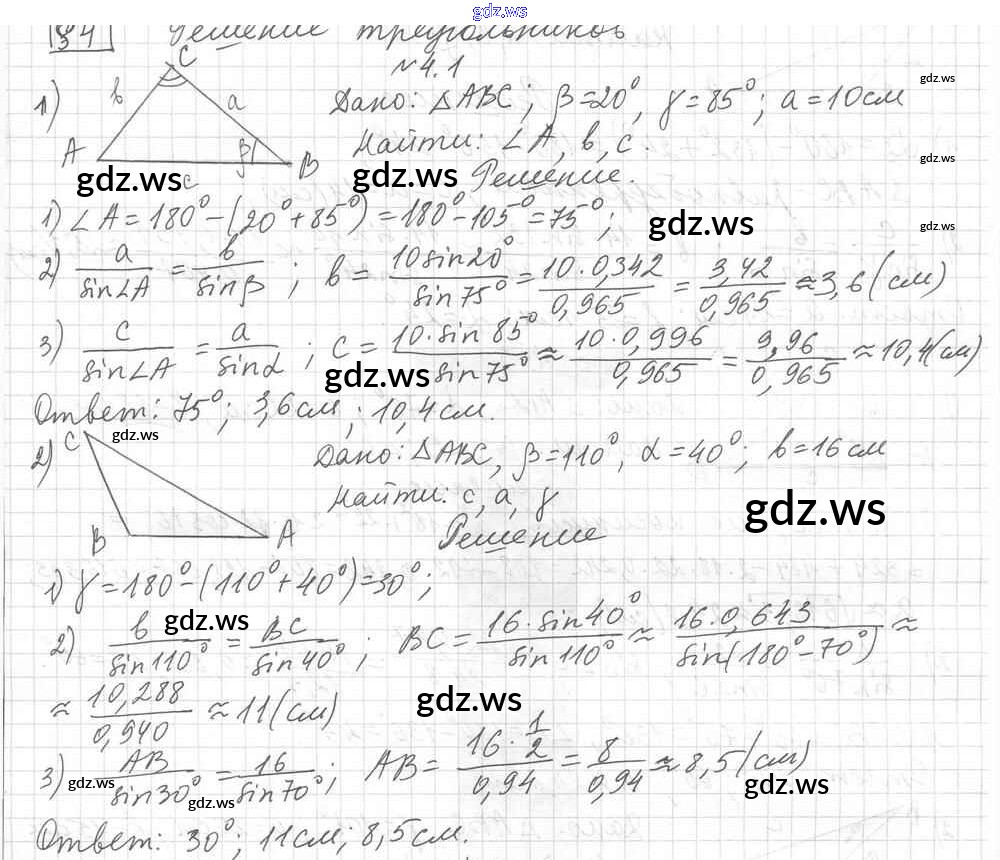 gdz.ws
§4 Решение треугольников
№4.1
1) Дано: △ABC; β=20°, γ=85°; a=10см
C
b a
A β B
c
gdz.ws
Найти: ∠A, b, c.
gdz.ws
gdz.ws gdz.ws
Решение.
1) ∠A=180°-(20°+85°)=180°-105°=75°;
gdz.ws gdz.ws
2) a/sin∠A = b/sinβ; b = 10sin20°/sin75° = 10·0,342/0,965 = 3,42/0,965 ≈ 3,6(см)
3) c/sin∠A = a/sinα; c = 10·sin85°/sin75° ≈ 10·0,996/0,965 = 9,96/0,965 ≈ 10,4(см)
gdz.ws
Ответ: 75°; 3,6см; 10,4см.
gdz.ws
2) Дано: △ABC, β=110°, α=40°; b=16см
C
B A
Найти: c, a, γ
gdz.ws
Решение
1) γ=180°-(110°+40°)=30°;
gdz.ws
2) b/sin110° = BC/sin40°; BC = 16·sin40°/sin110° ≈ 16·0,643/sin(180°-70°) ≈
≈ 10,288/0,940 ≈ 11(см)
gdz.ws
3) AB/sin30° = 16/sin70°; AB = 16·1/2/0,94 = 8/0,94 ≈ 8,5(см)
gdz.ws gdz.ws gdz.ws
Ответ: 30°; 11см; 8,5см.